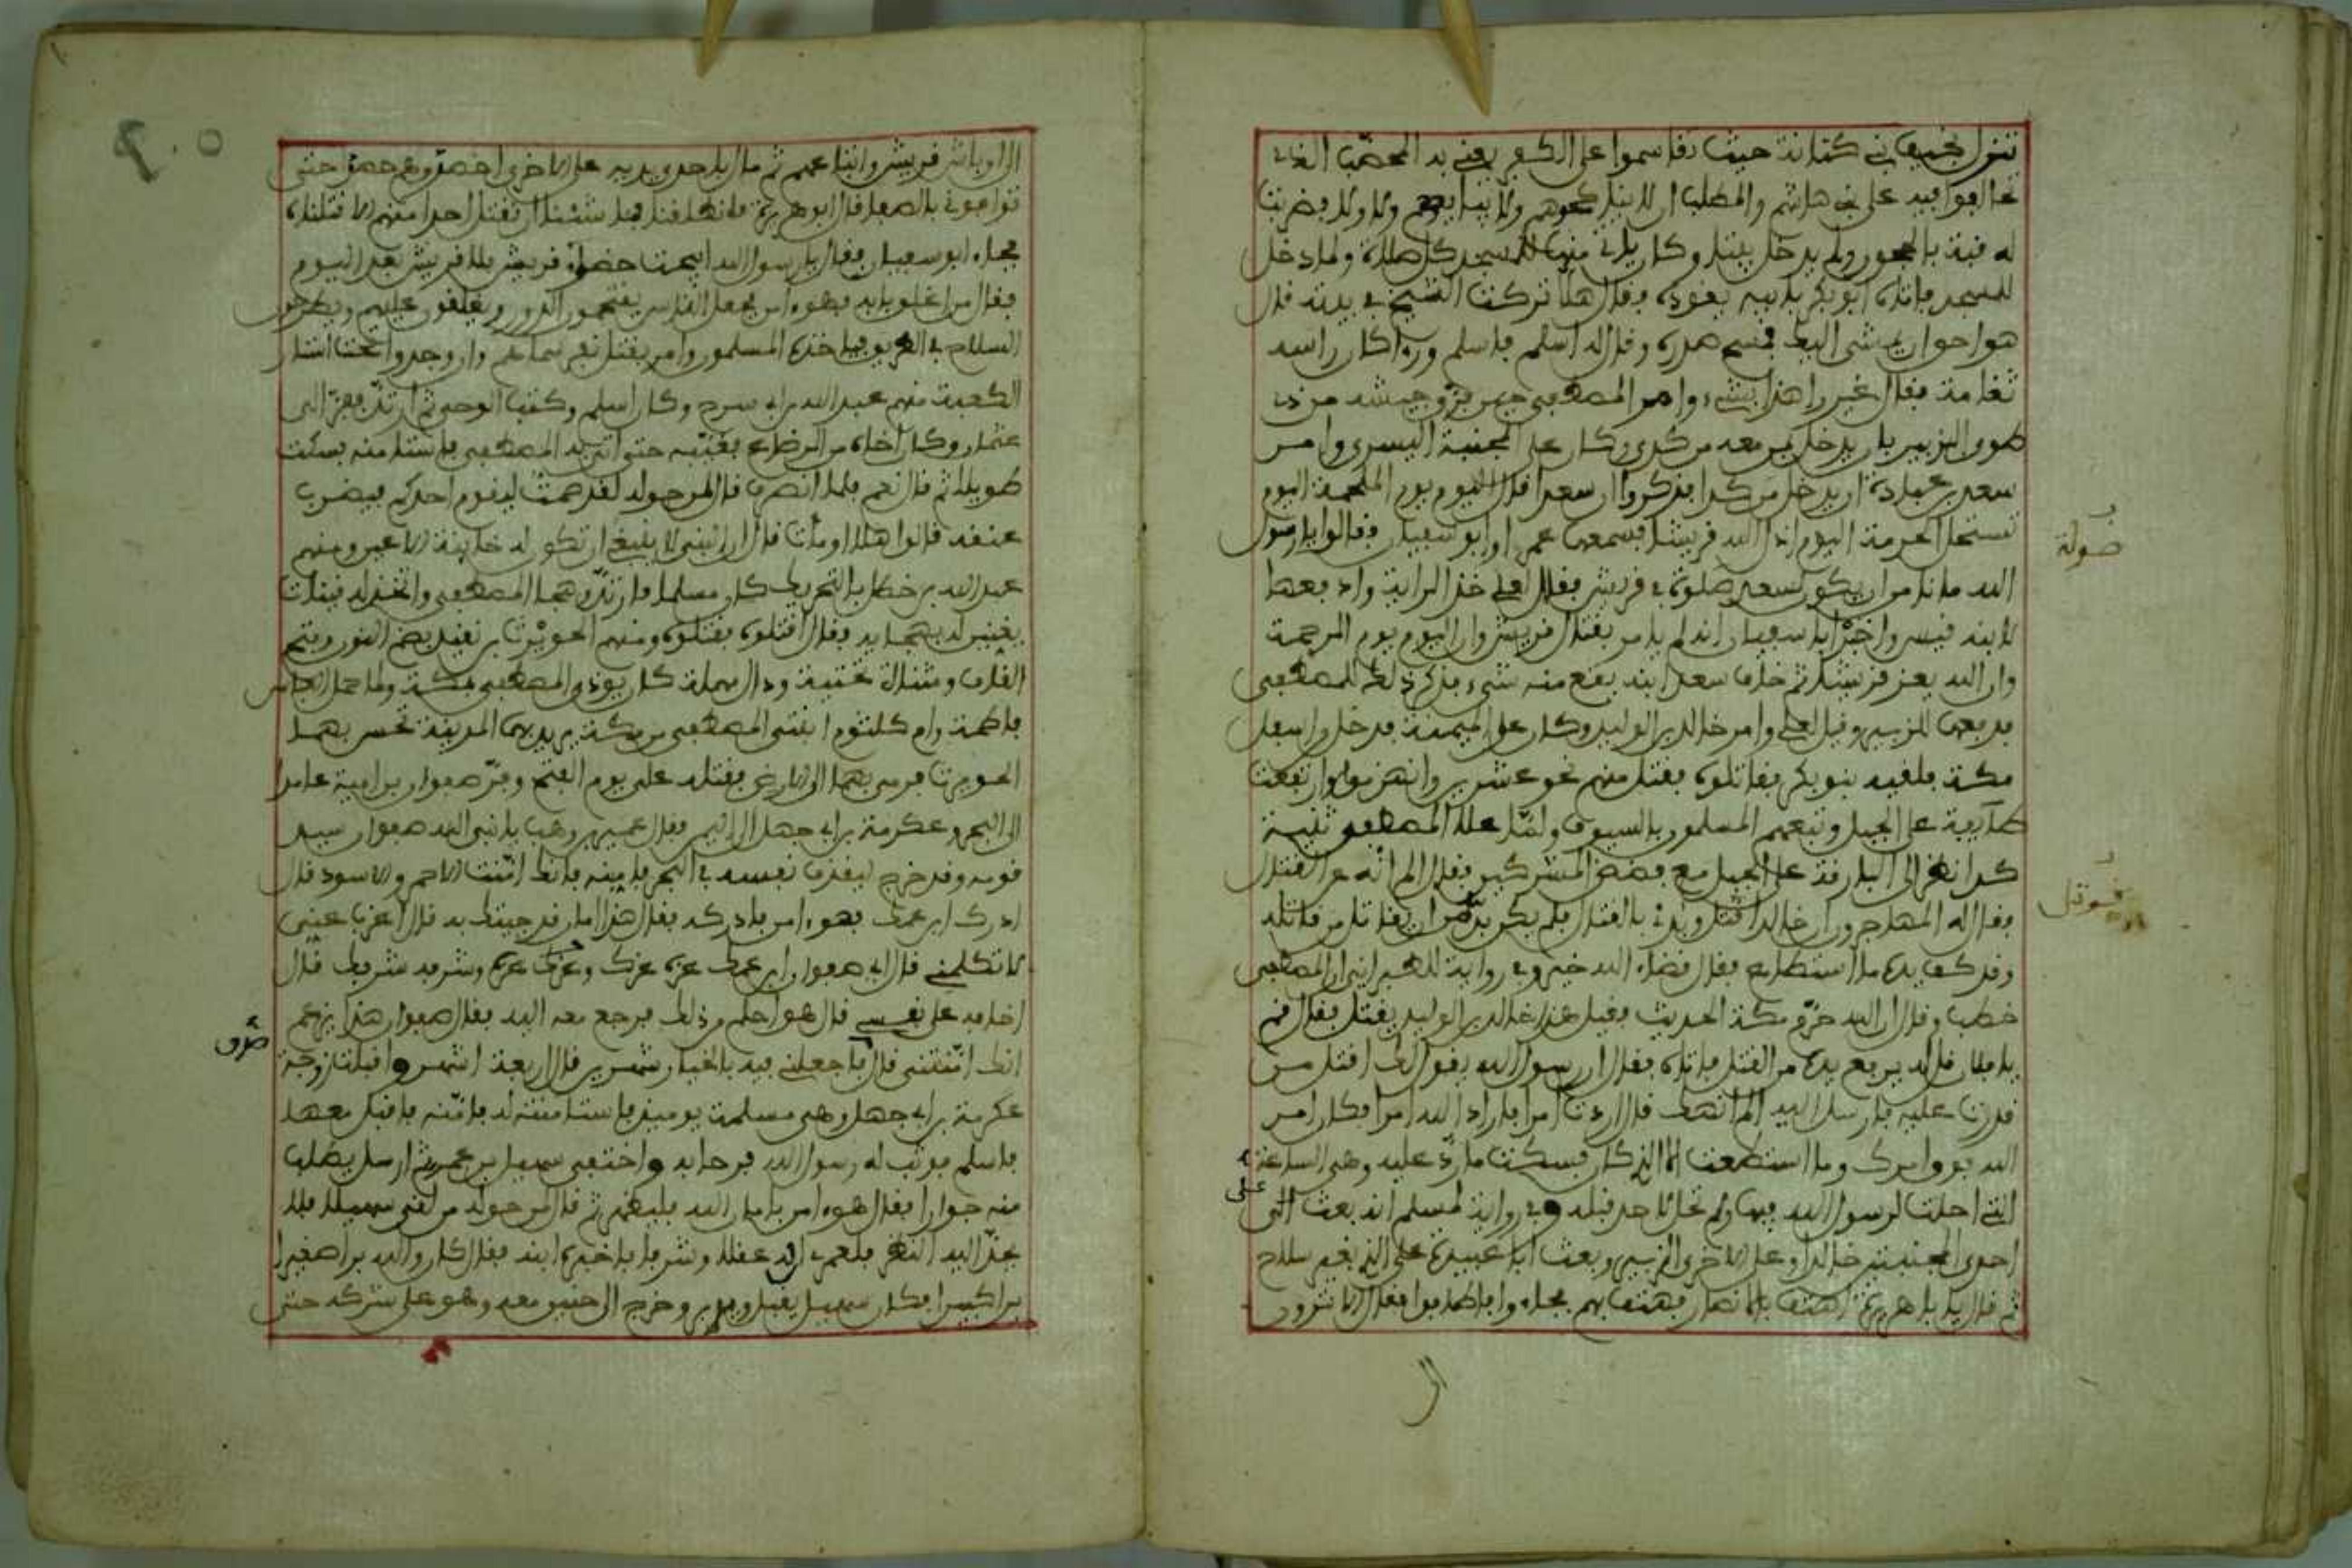 ننزل بخيف بني كنانة حيث تقاسموا على الكفر يعني به المحصب الذي
تحالفوا فيه على بني هاشم والمطلب أن لا يناكحوهم ولا يبايعوهم ولا ولا فضربت
له قبة بالحجون ولم يدخل بيتا وكان يأتي منها للمسجد كل صلاة ولما دخل
المسجد فأتاه أبو بكر بأبيه يقوده فقال هلا تركت الشيخ في بيته قال
هو أحق أن يمشي إليك فمسح صدره وقال له أسلم فأسلم ورءا كان رأسه
ثغامة فقال غيروا هذا بشيء وأمر المصطفى حين فرق جيشه من ذي
طوى الزبير بأن يدخل بمن معه من كدى وكان على المجنبة اليسرى وأمر
سعد بن عبادة أن يدخل من كداء فذكروا أن سعدا قال اليوم يوم الملحمة اليوم
تستحل الحرمة اليوم أذل الله قريشا فسمعها عمر أو أبو سفيان فقالوا يا رسول
الله ما نأمن أن يكون لسعد صولة في قريش فقال لعلي خذ الراية وادفعها
لابنه قيس وأخبر أبا سفيان أنه لم يأمر بقتل قريش وأن اليوم يوم المرحمة
وأن الله يعز قريشا ثم خاف سعد ابنه يقع منه شيء فذكر ذلك للمصطفى
فدفعها للزبير وقيل لعلي وأمر خالد بن الوليد وكان على الميمنة فدخل من أسفل
مكة فلقيه بنو بكر فقاتلوه فقتل منهم نحو عشرين وانهزموا وارتفعت
طائفة على الجبل وتبعهم المسلمون بالسيوف ولما علا المصطفى ثنية
كداء نظر إلى البارقة على الجبل مع فضض المشركين فقال ألم أنه عن القتال
فقال له المهاجرون إن خالدا قوتل وبدئ بالقتال فلم يكن بد من أن يقاتل من قاتله
وقد كف يده ما استطاع فقال قضاء الله خير وفي رواية للطبراني أن المصطفى
خطب وقال إن الله حرم مكة الحديث فقيل هذا خالد بن الوليد يقتل فقال قم
يا فلان قل له يرفع يده من القتل فأتاه فقال إن رسول الله يقول لك اقتل من
قدرت عليه فأرسل إليه ألم أنهك قال أردت أمرا فأراد الله أمرا فكان أمر
الله فوق أمرك وما استطعت إلا الذي كان فسكت ما رد عليه وهي الساعة
التي أحلت لرسول الله فيها ولم تحل لأحد قبله وفي رواية لمسلم أنه بعث على
إحدى المجنبتين خالدا وعلى الأخرى الزبير وبعث أبا عبيدة على الذين بغير سلاح
ثم قال يا أبا هريرة اهتف بالأنصار فهتف بهم فجاءوا فأطافوا فقال ألا ترون
صولة
قوتل
على
إلى
إلى أوباش قريش وأتباعهم ثم مال بإحدى يديه على الأخرى احصدوهم حصدا حتى
توافوني بالصفا قال أبو هريرة فانطلقنا فما شئنا أن نقتل أحدا منهم إلا قتلناه
فجاء أبو سفيان فقال يا رسول الله أبيحت خضراء قريش لا قريش بعد اليوم
فقال من أغلق بابه فهو آمن فجعل الناس يفتحون الدور ويغلقون عليهم ويطرحون
السلاح في الطريق فيأخذه المسلمون وأمر بقتل نفر سماهم وإن وجدوا تحت أستار
الكعبة منهم عبد الله بن أبي سرح وكان أسلم وكتب الوحي ثم ارتد ففر إلى
عثمان وكان أخاه من الرضاع فغيبه حتى أتى به المصطفى فاستأمنه فسكت
طويلا ثم قال نعم فلما انصرف قال لمن حوله لقد صمت ليقوم أحدكم فيضرب
عنقه قالوا هلا أومأت قال إن النبي لا ينبغي أن تكون له خائنة الأعين ومنهم
عبد الله بن خطل بالتحريك كان مسلما فارتد وهجا المصطفى واتخذ له قينات
يغنين له بهجائه فقال اقتلوه فقتلوه ومنهم الحويرث بن نقيذ بضم النون وفتح
القاف ومثناة تحتية وذال مهملة كان يؤذي المصطفى بمكة ولما حمل العباس
فاطمة وأم كلثوم ابنتي المصطفى من مكة يريد بهما المدينة نخس بهما
الحويرث فرمى بهما إلى الأرض فقتله علي يوم الفتح وفر صفوان بن أمية عامدا
إلى البحر وعكرمة بن أبي جهل إلى اليمن فقال عمير بن وهب يا نبي الله صفوان سيد
قومه وقد خرج ليقذف نفسه في البحر فأمنه فإنك أمنت الأحمر والأسود قال
أدرك ابن عمك فهو آمن فأدركه فقال هذا أمان قد جئتك به قال اغرب عني
لا تكلمني قال أي صفوان ابن عمك عزه عزك وعزك عزه وشرفه شرفك قال
أخافه على نفسي قال هو أحلم من ذلك فرجع معه إليه فقال صفوان هذا يزعم
أنك أمنتني قال فاجعلني فيه بالخيار شهرين قال أربعة أشهر وأقبلت زوجة
عكرمة بن أبي جهل وهي مسلمة يومئذ فاستأمنته له فأمنه فأقبل معها
فأسلم فوثب له رسول الله فرحا به واختفى سهيل بن عمرو ثم أرسل يطلب
منه جوارا فقال هو آمن بأمان الله فليظهر ثم قال لمن حوله من لقي سهيلا فلا
يحد إليه النظر فلعمري إن له عقلا وشرفا فأخبره ابنه فقال كان والله برا صغيرا
برا كبيرا فكان سهيل يقبل ويدبر وخرج إلى حنين معه وهو على شركه حتى